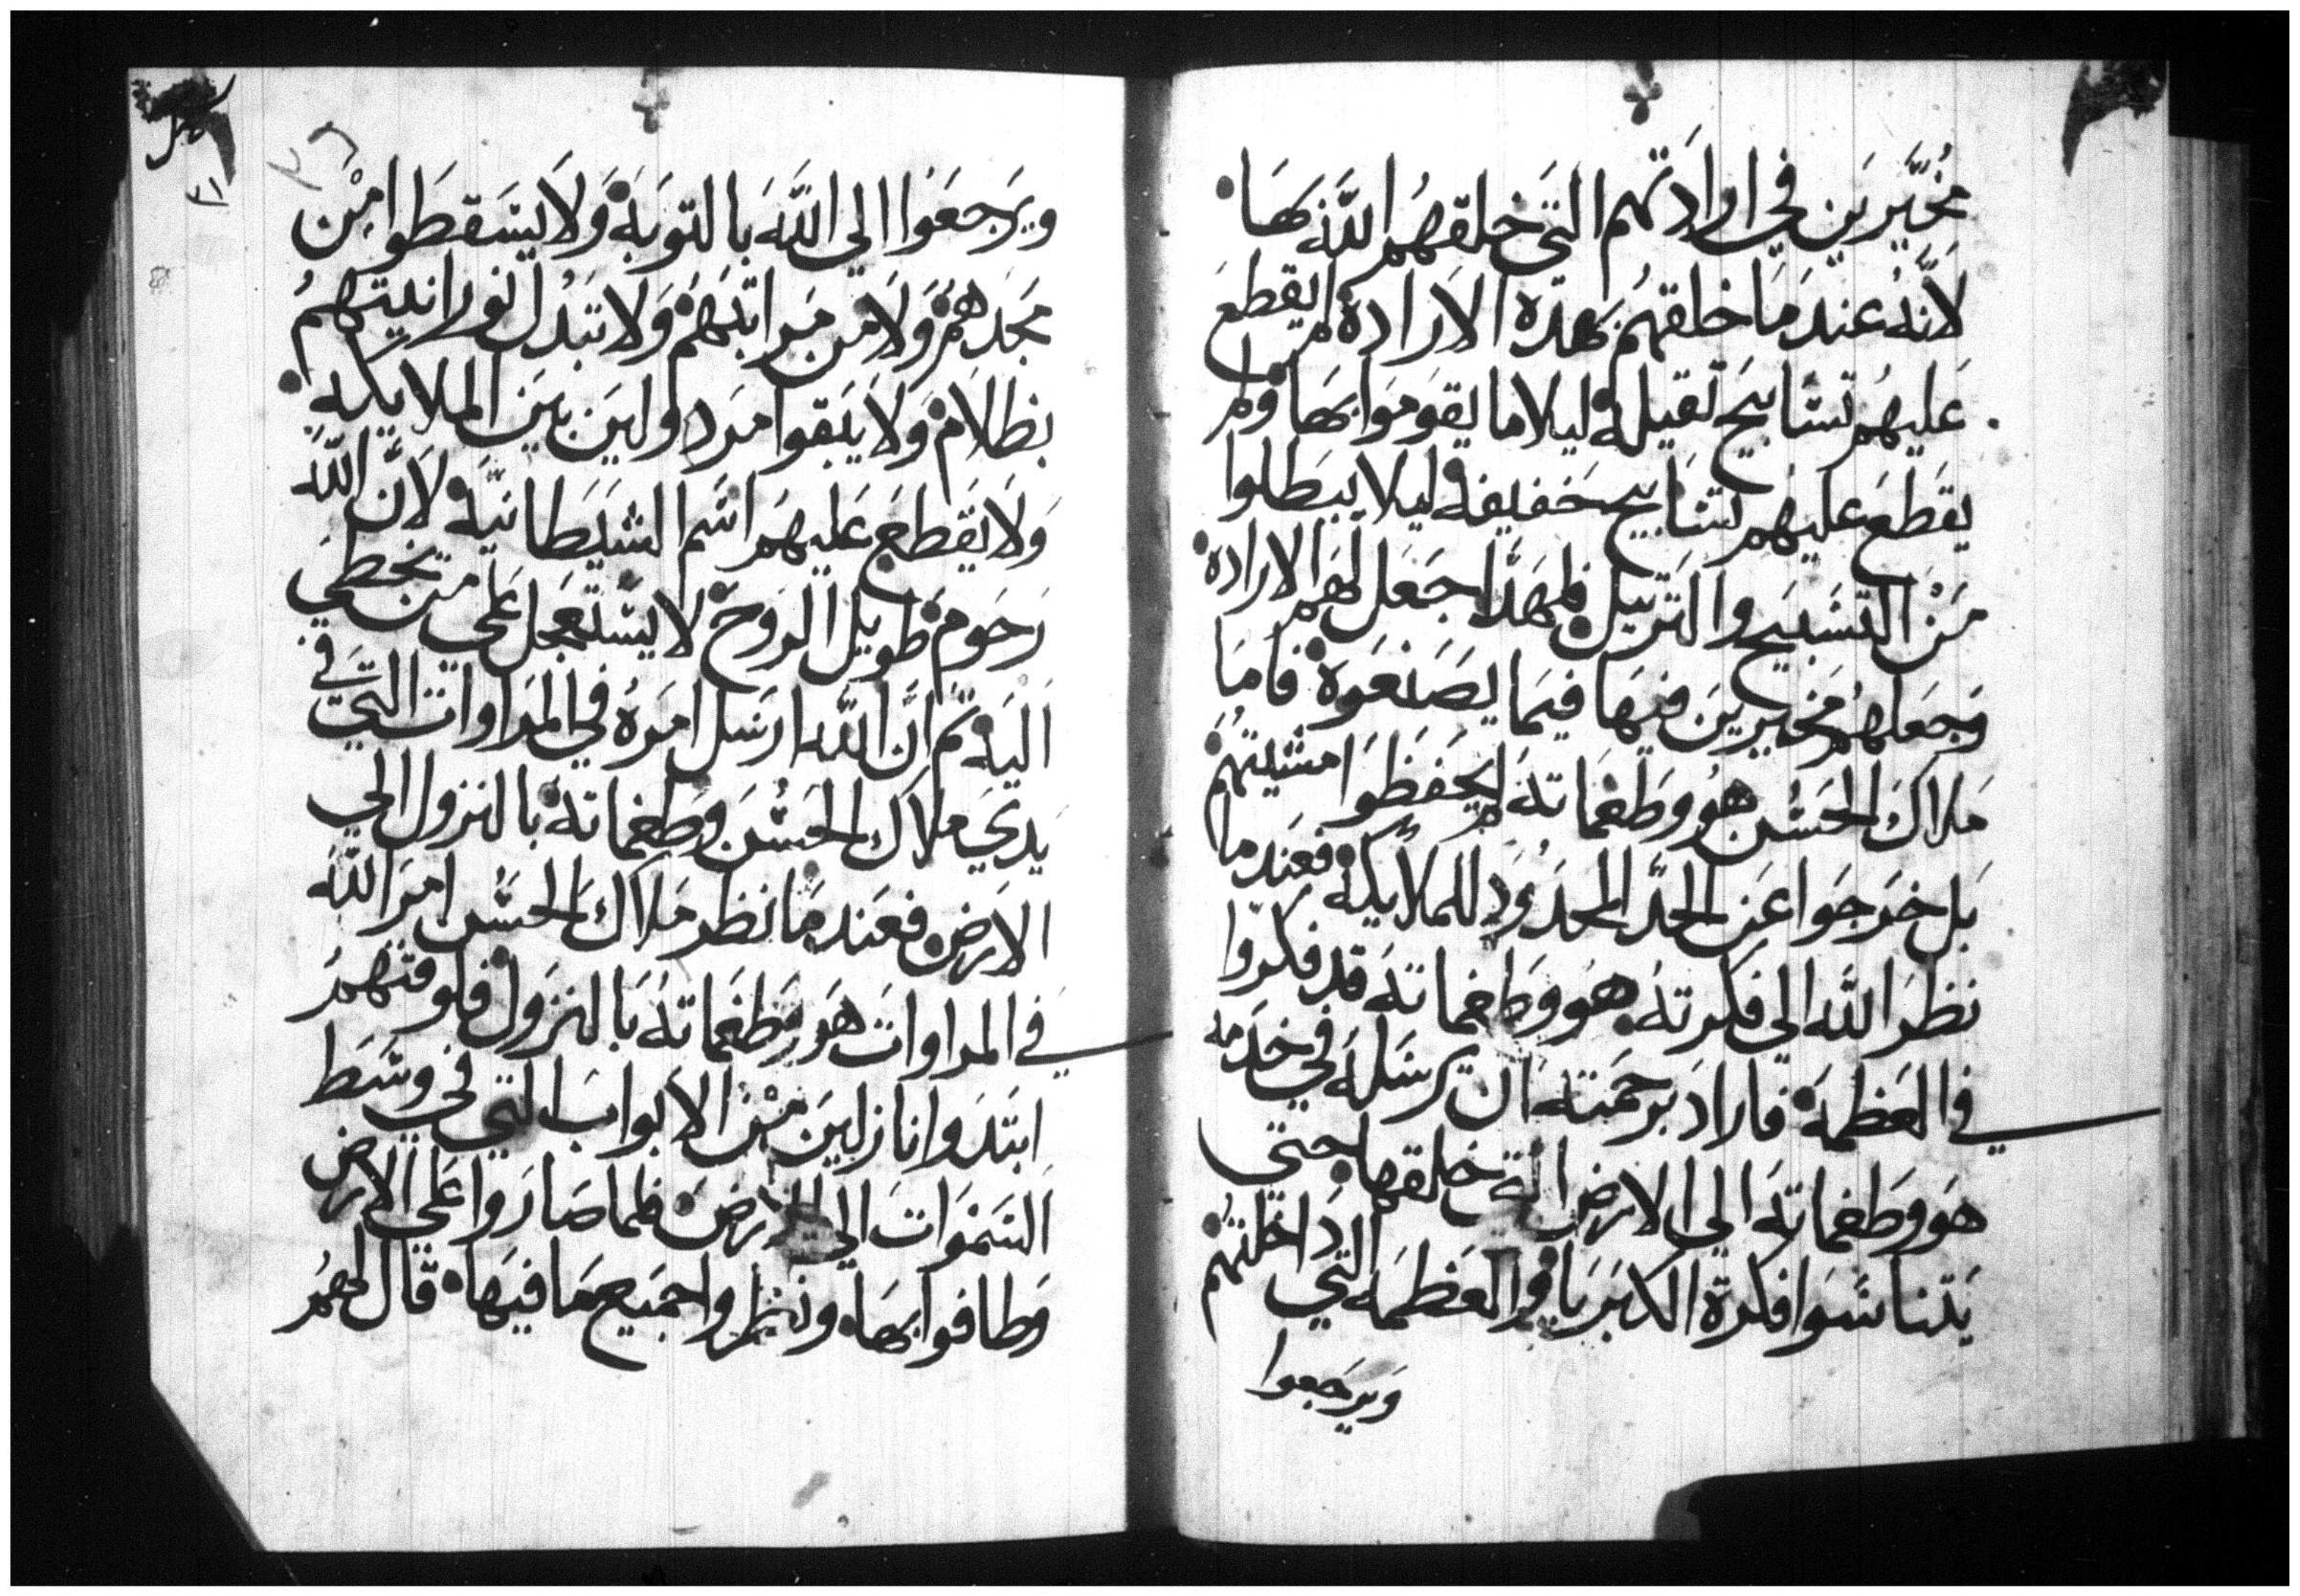 مخُيَّرَين في ارادَتهم التَي خلقهُم اللَّه بهَا
لانَّهُ عندَ مَا خلقهُم بَهده الاَرادة لم يقطعَ
عَليهُم تسَابيحَ تقيله ليلا ما يقوَموَا بهَا ولم
يقَطعَ عليهُم تسَابيح خفيفه ليلا يبَطلوا
مَن التسَبيَح والتَرتيل فلهَدا جَعَل لهَم الاراده
وَجعَلهُم مخَيرينَ فيهَا فيمَا يصَنعَوَة فامَا
مَلاكَ الحسُن هوُ وطغمَاتهَ لم يحَفظوَا امتثليتهُم
بَل خرَجوَا عَن الحدَّ المحدَوُد للملايكه فعَندما
نظرَ اللَّه الي فكرتهُ هوَ وَطغماتهَ قد فكروَا
في العَظمَة فارادَ برحمَتهَ ان يرسَلهَ في خدَمه
هوَ وَطغماتهَ الي الارض التي خلقها حتي
يَتناسَوَا فكرة الكبَريَا والعَظمَه التَي ادَاخلتهُم
وَيرَجعوا
ويرَجعَوُا الي اللَّهَ بالتوبَة وَلا يسَقطوَا مِن
مَجدهم وَلا من مَراتبهَم وَلا تبَدُل نورَانيتهمُ
بظلام وَلا يَبقوا مرَدولين بَين الملايكه
وَلا يَقطعَ عَليهَم اسَم الشَيَطانيَّة لاَن اللَّه
رَحوَم طويل الروَح لا يسَتعَجل عَلي من يخطي
اليَه تم انَّ اللَّه ارسَل امَرهُ في المَراوات التيَ في
يَدي ملاك الحسُنَ وطغماتهَ بالنزول الي
الارَض فعَندمَا نظر مَلاكَ الحسَُن امرَ اللَّه
في المراواتَ هوَ وَطغَماتهُ بَالنزَول فلوقتهمُ
ابتَدَوا نازلين مَن الابوابَ التيَ في وسَط
السَموَاتَ الي الارضَ فلما صَارَوا عَلي الارض
وَطافوا بهَا ونظروا جَميع مَا فيهَا قال لهمُ